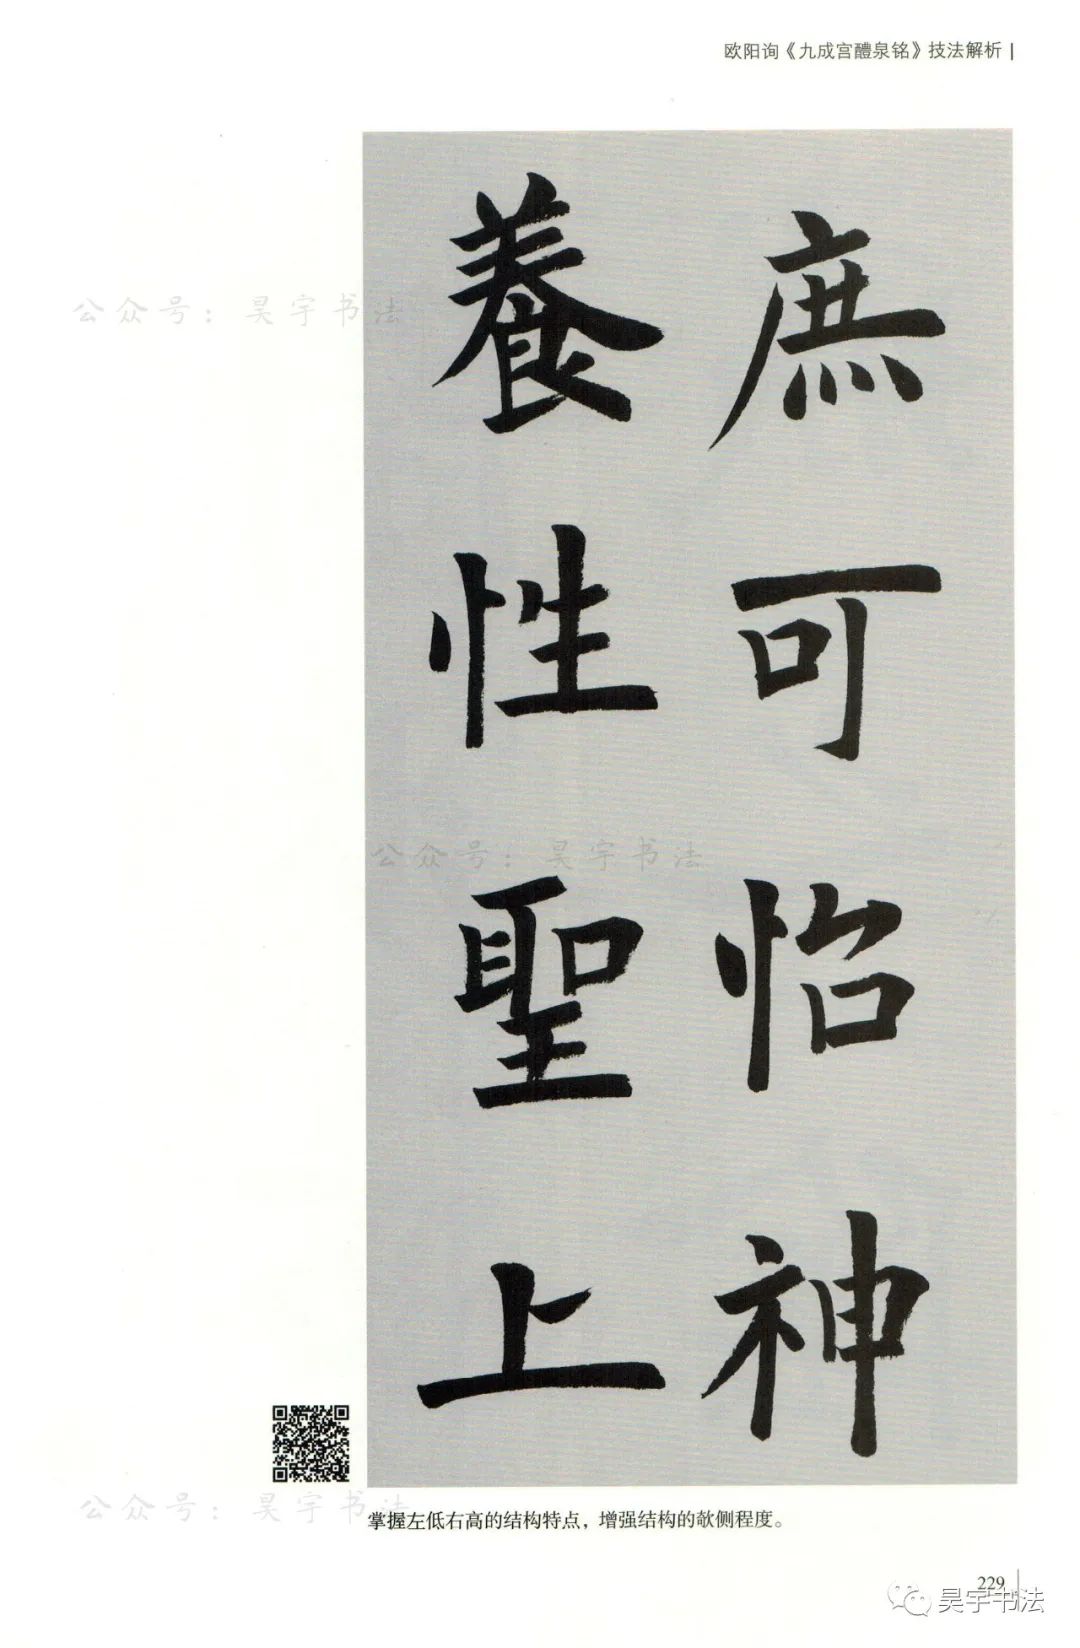 欧阳询《九成宫醴泉铭》技法解析
庶可怡神
養性聖上
公众号：昊宇书法
公众号：昊宇书法
公众号：昊宇书法
掌握左低右高的结构特点，增强结构的欹侧程度。
229
昊宇书法